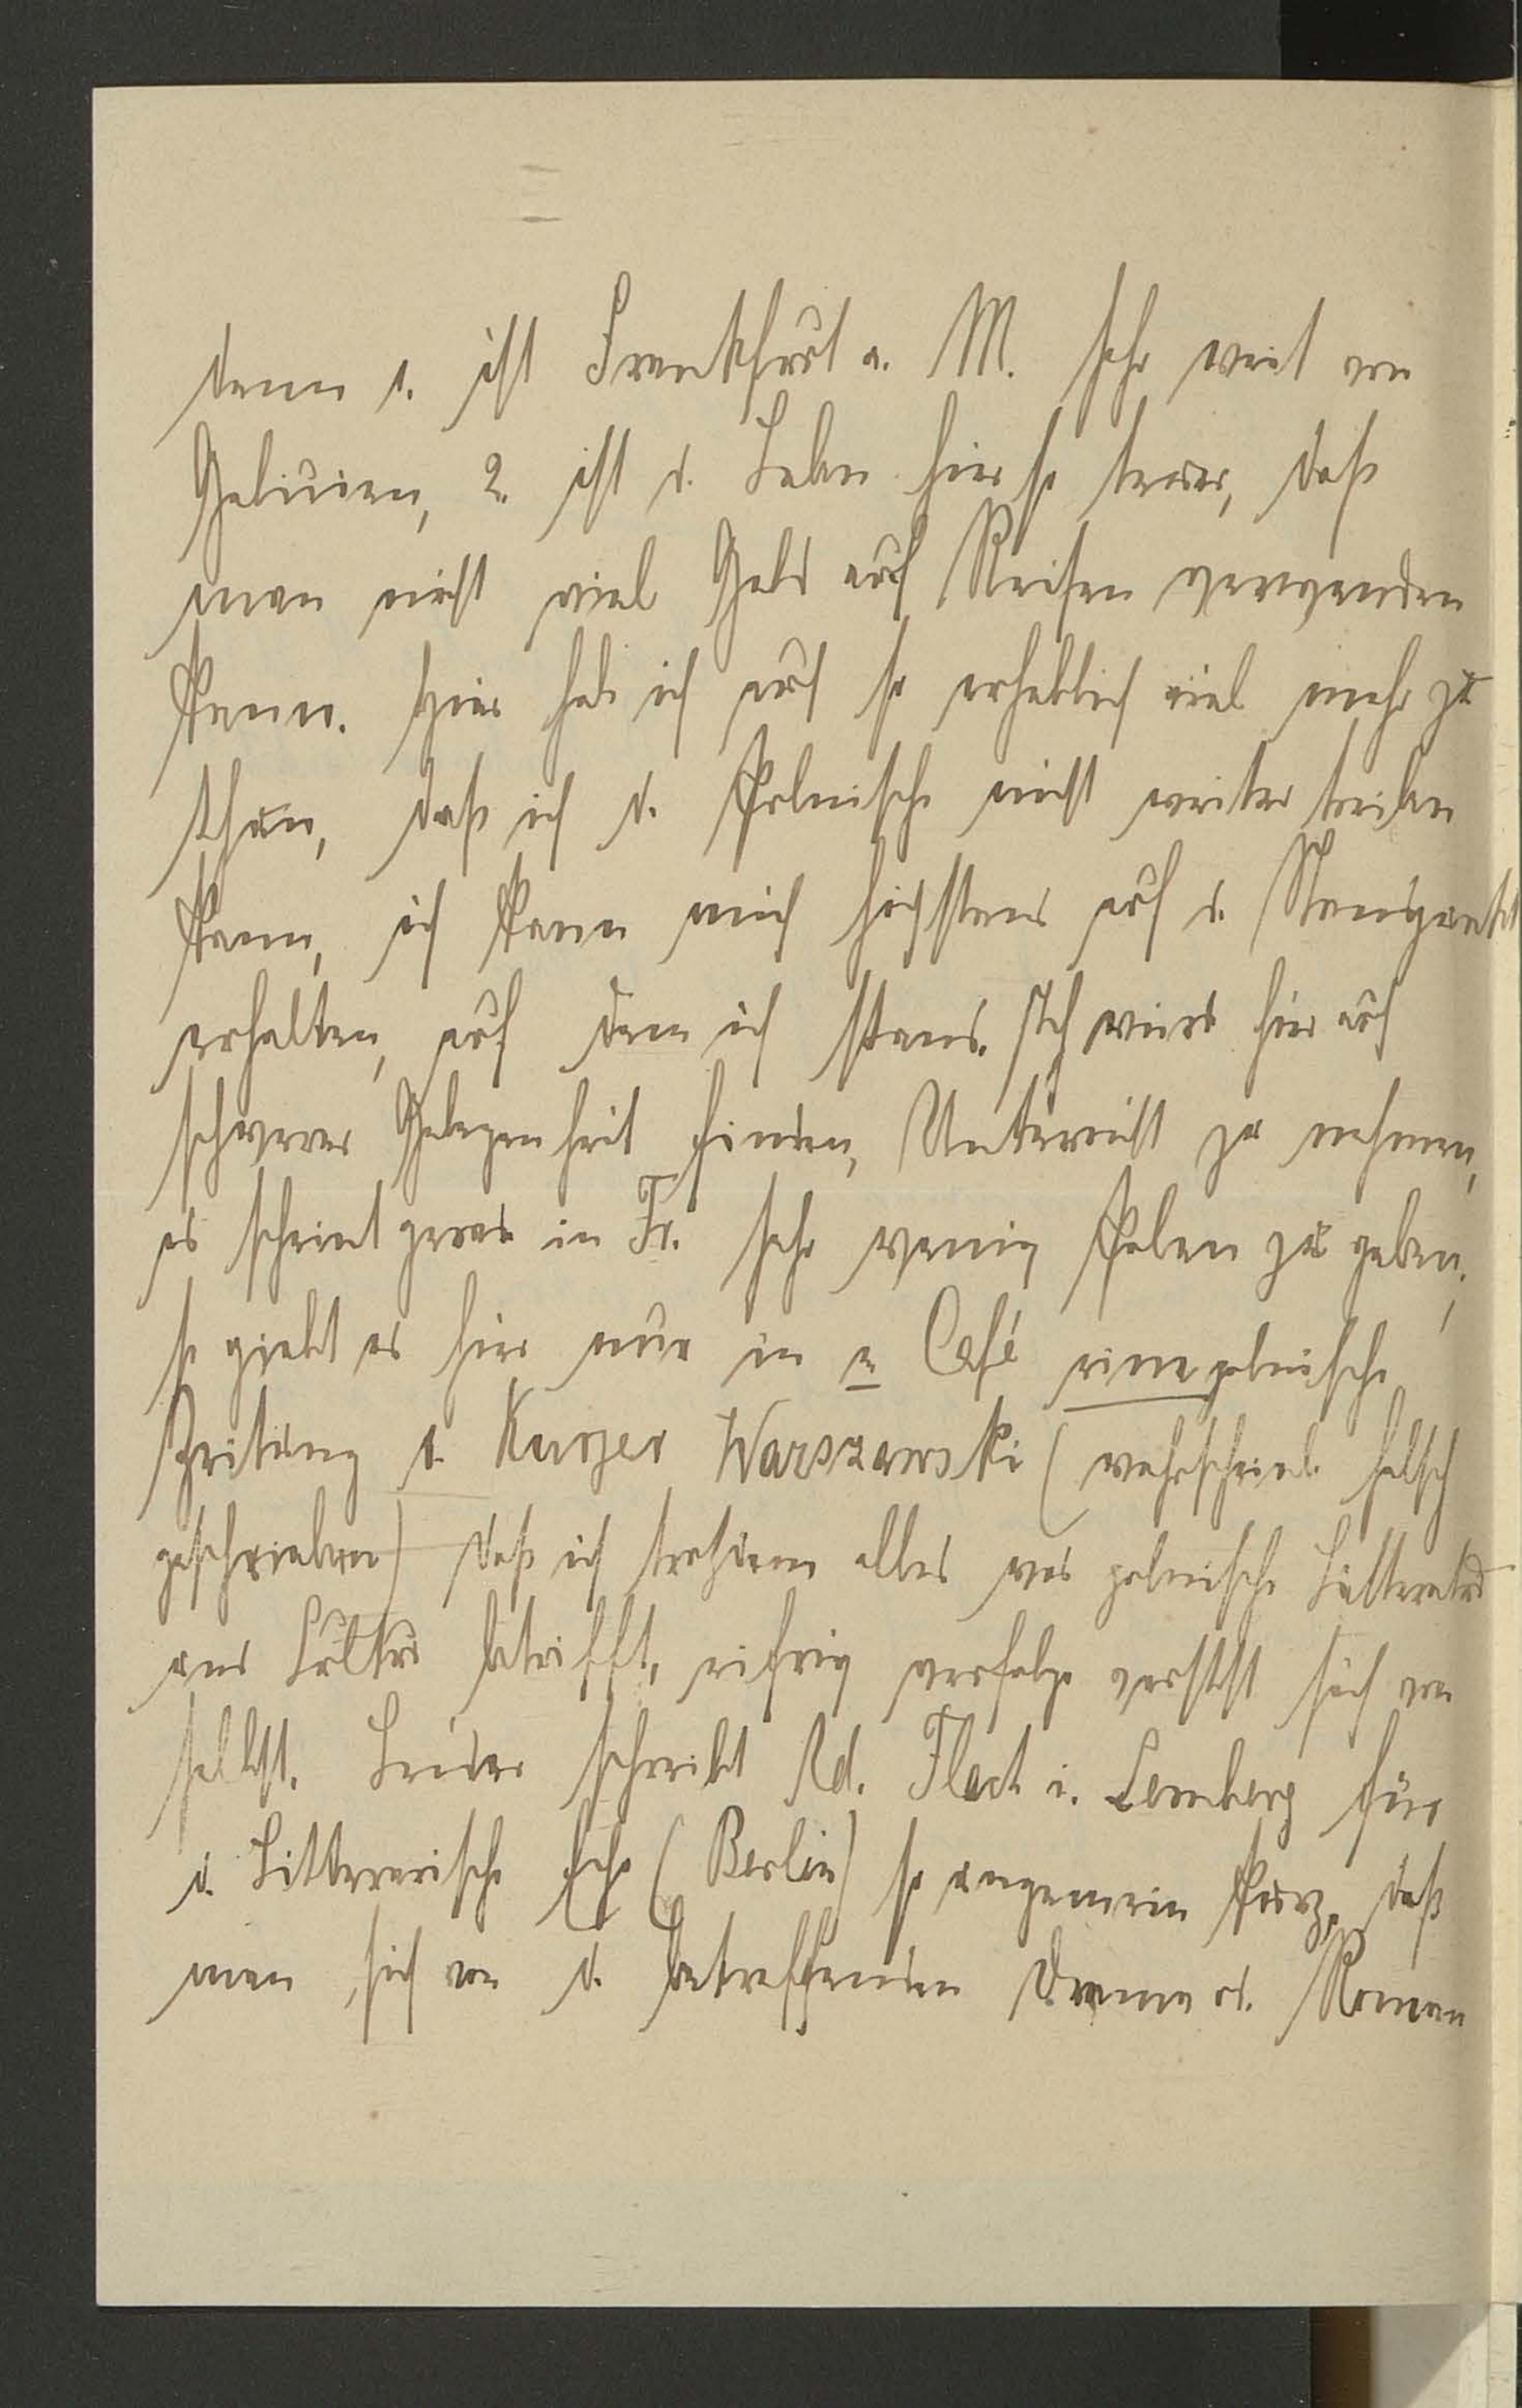 denn 1. ist Frankfurt a. M. sehr weit von
Galizien, 2. ist d. Leben hier so teuer, daß
man nicht viel Geld auf Reisen verwenden
kann. Hier hab ich auch so erheblich viel mehr zu
thun, daß ich d. Polnische nicht weiter treiben
kann, ich kann mich höchstens auf d. Standpunkt
erhalten, auf dem ich stand. Ich werde hier auch
schwerer Gelegenheit finden, Unterricht zu nehmen,
es scheint gerade in Fr. sehr wenig Polen zu geben,
so giebt es hier nur in e. Café eine polnische
Zeitung d. Kurjer Warszawski (wahrscheinl. falsch
geschrieben) daß ich trotzdem alles was polnische Litteratur
und Cultur betrifft, eifrig verfolge versteht sich von
selbst. Leider schreibt Rd. Flach i. Lemberg für
d. Litterarische Echo (Berlin) so ungemein kurz, daß
man sich von d. betreffenden Drama od. Roman